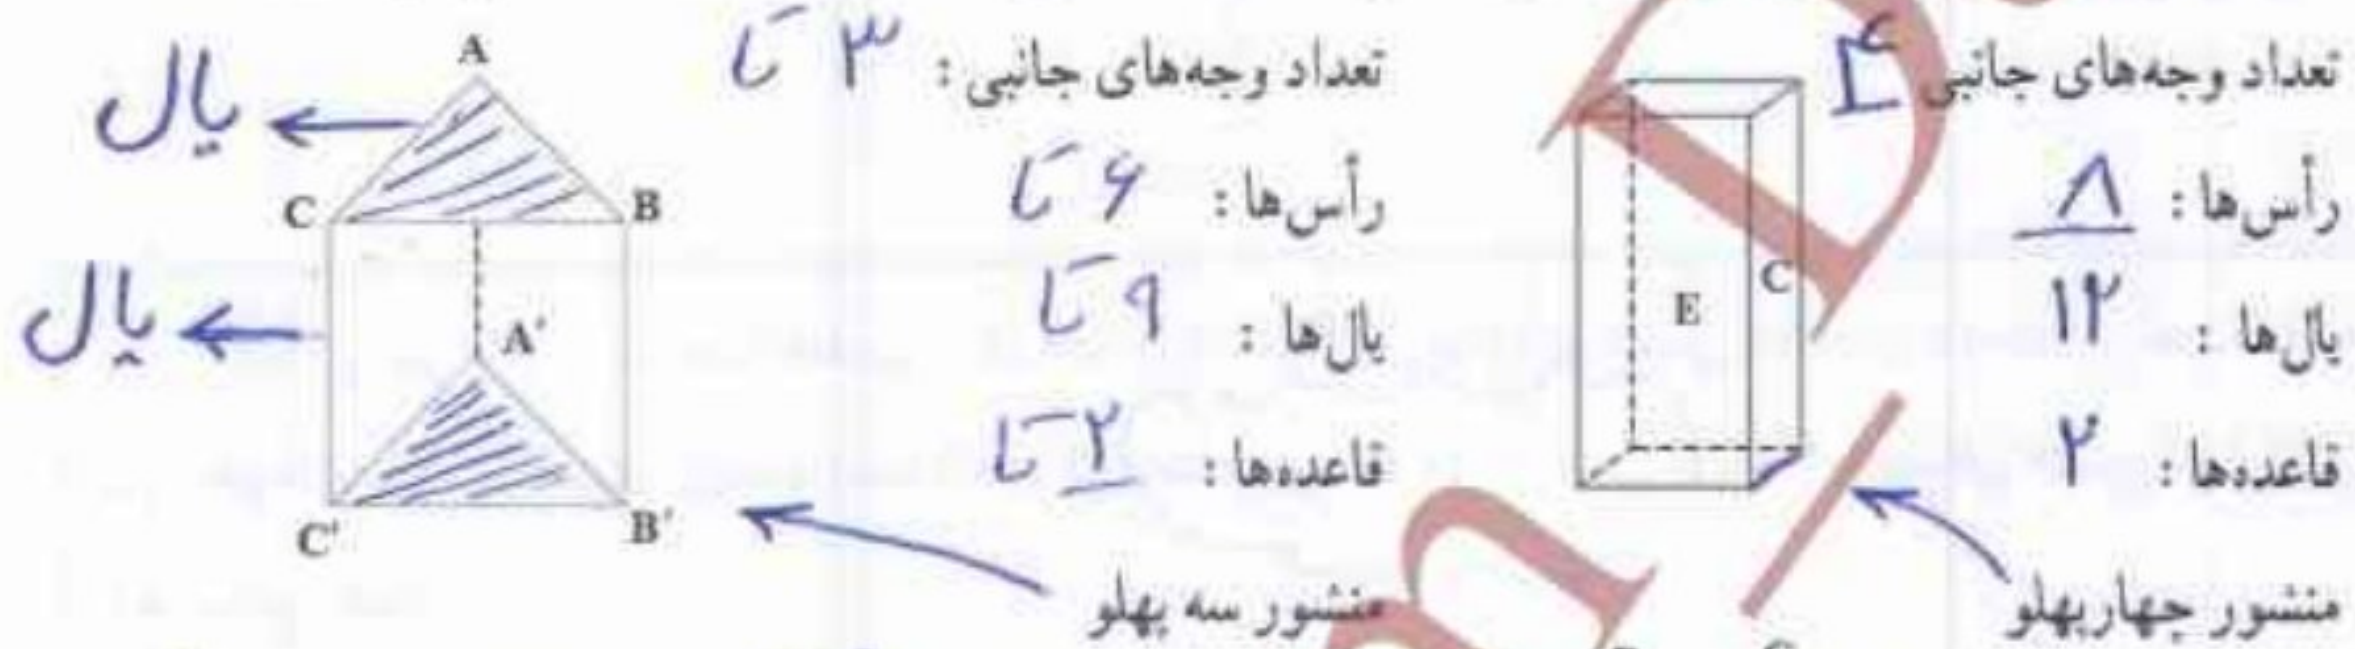 تعداد وجه‌های جانبی ۴
رأس‌ها : ۸
یال‌ها : ۱۲
قاعده‌ها : ۲
منشور چهارپهلو
E
C
تعداد وجه‌های جانبی : ۳ تا
رأس‌ها : ۶ تا
یال‌ها : ۹ تا
قاعده‌ها : ۲ تا
منشور سه پهلو
A
یال
C B
یال
A'
C' B'